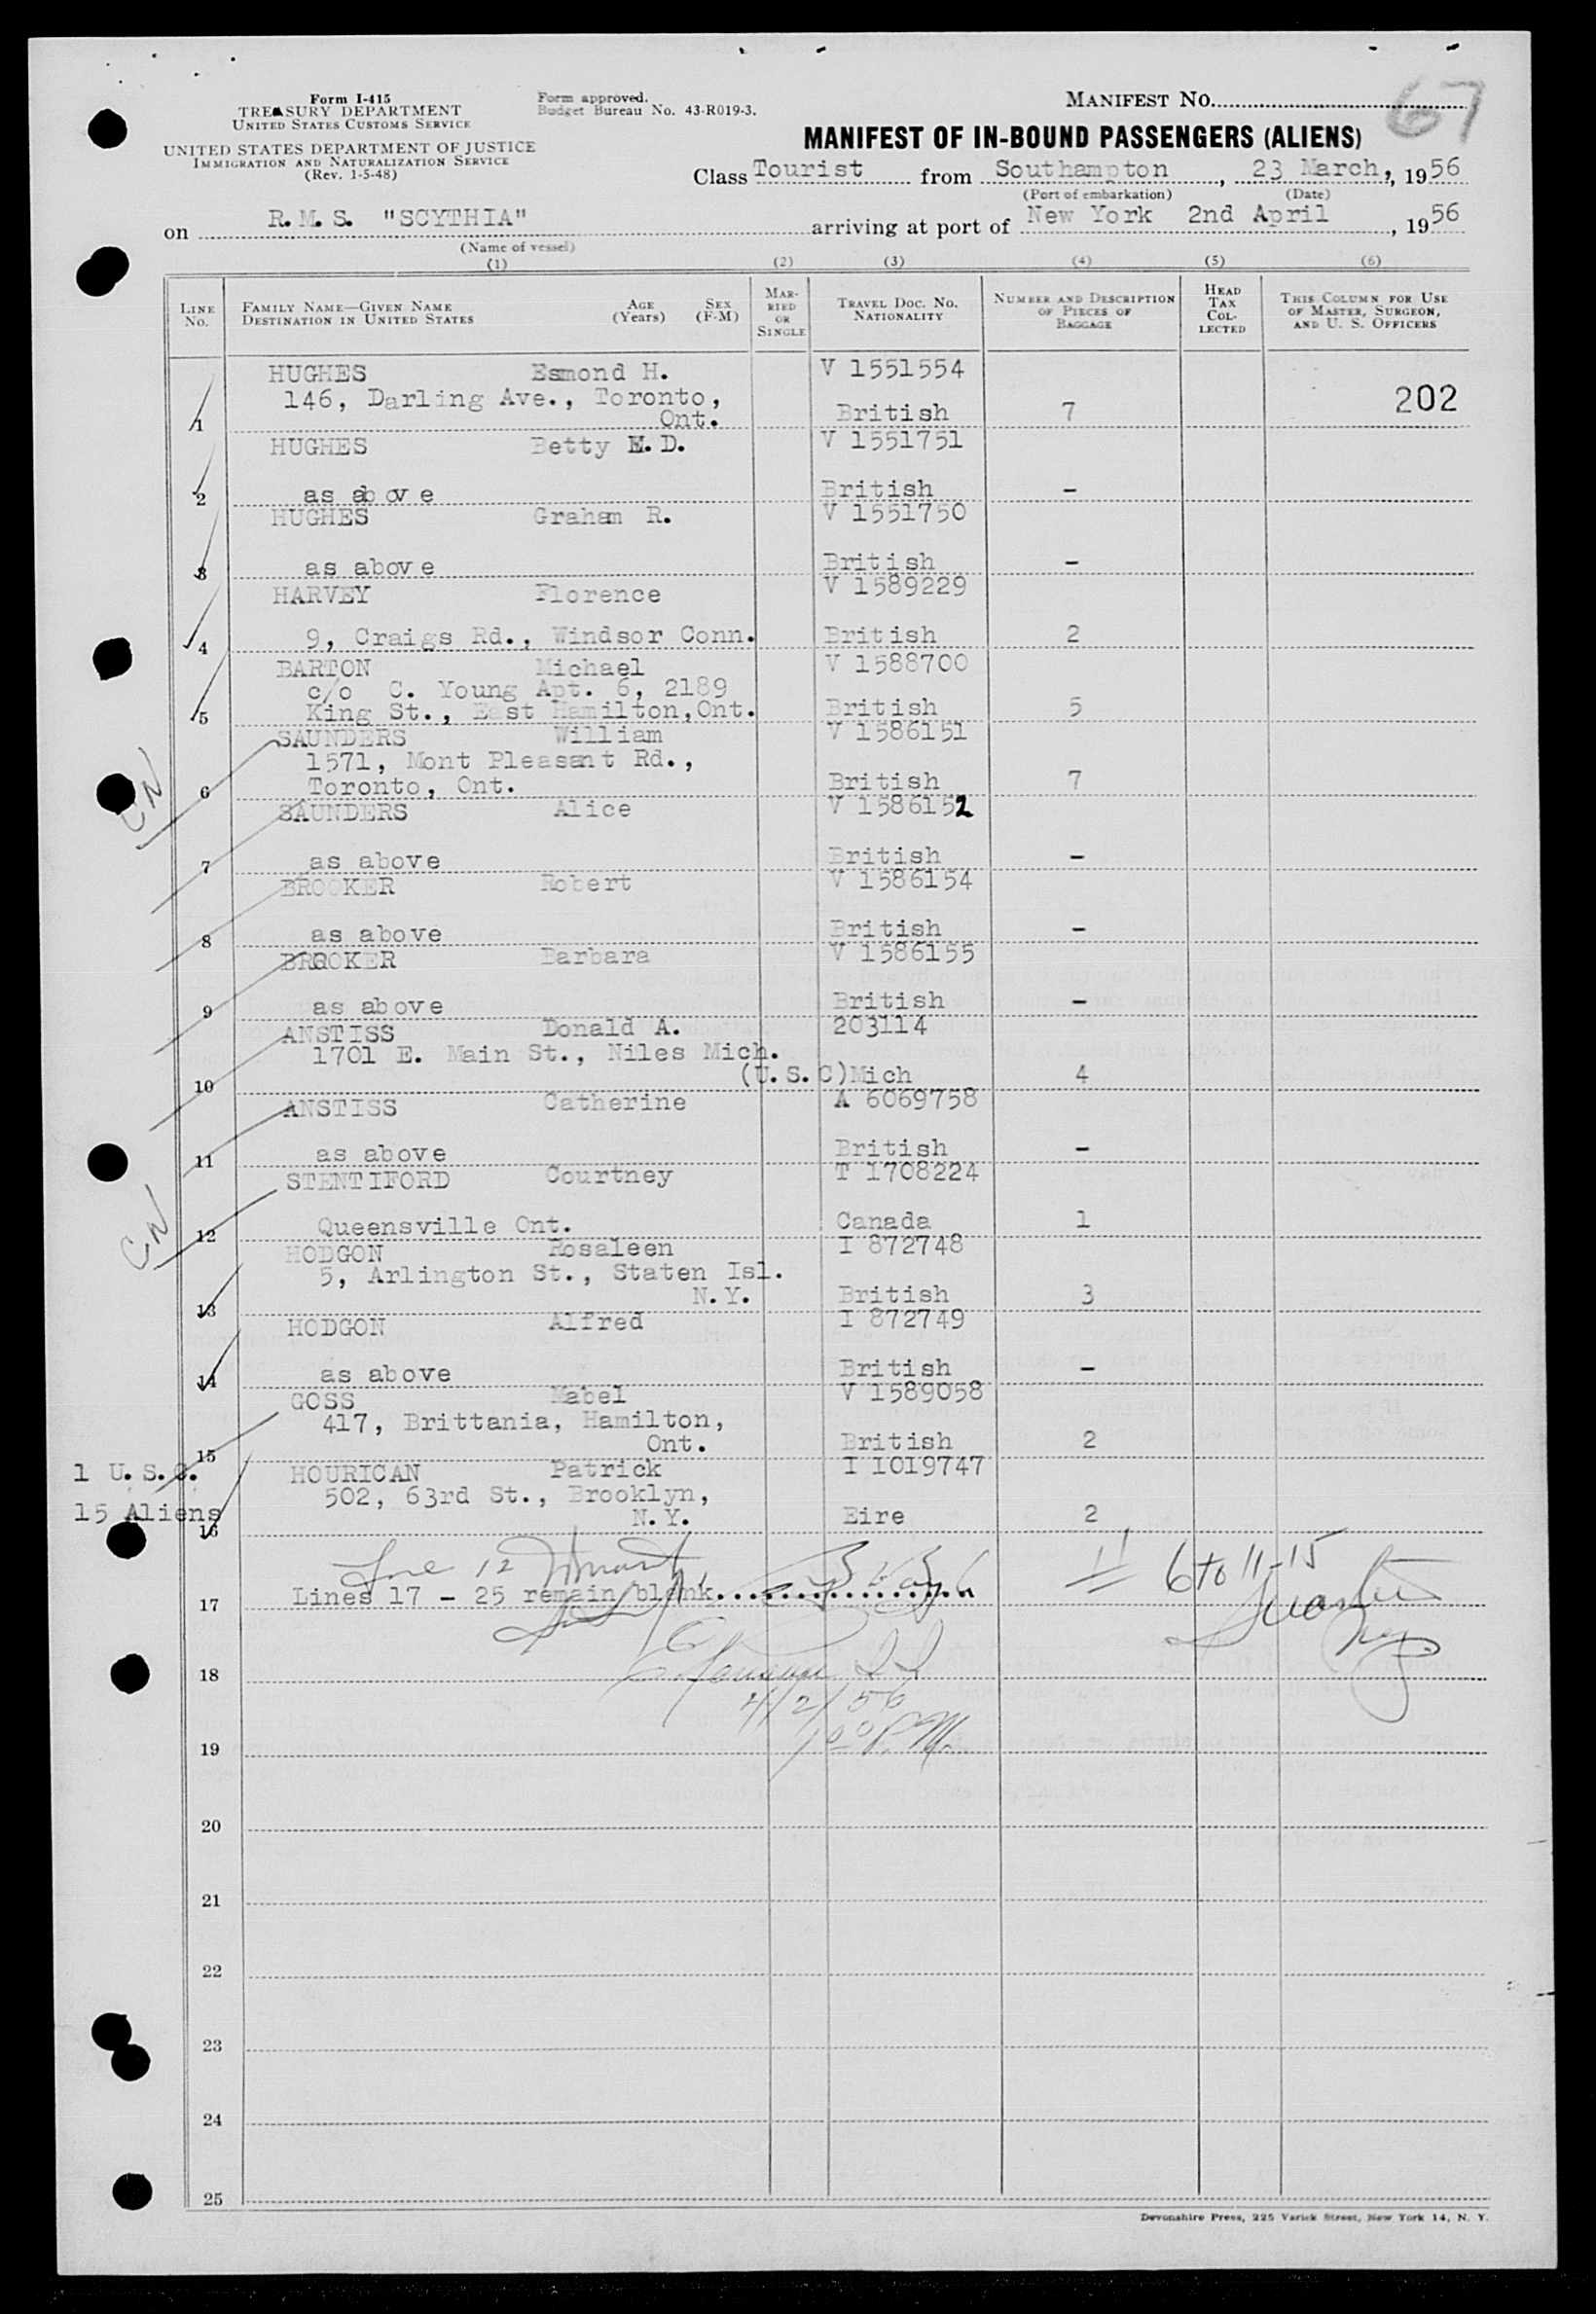 Form I-415
TREASURY DEPARTMENT
UNITED STATES CUSTOMS SERVICE
UNITED STATES DEPARTMENT OF JUSTICE
IMMIGRATION AND NATURALIZATION SERVICE
(Rev. 1-5-48)
Form approved.
Budget Bureau No. 43-R019-3.
MANIFEST NO. 67
MANIFEST OF IN-BOUND PASSENGERS (ALIENS)
Class Tourist from Southampton, 23 March, 1956
(Port of embarkation) (Date)
on R.M.S. "SCYTHIA" arriving at port of New York 2nd April, 1956
(Name of vessel)
(1) (2) (3) (4) (5) (6)
LINE NO. FAMILY NAME—GIVEN NAME DESTINATION IN UNITED STATES AGE (Years) SEX (F-M) MARRIED OR SINGLE TRAVEL DOC. NO. NATIONALITY NUMBER AND DESCRIPTION OF PIECES OF BAGGAGE HEAD TAX COLLECTED THIS COLUMN FOR USE OF MASTER, SURGEON, AND U. S. OFFICERS
HUGHES Esmond H. V 1551554
146, Darling Ave., Toronto, 202
1 Ont. British 7
HUGHES Betty M.D. V 1551751
2 as above British -
HUGHES Graham R. V 1551750
3 as above British -
HARVEY Florence V 1589229
4 9, Craigs Rd., Windsor Conn. British 2
BARTON Michael V 1588700
c/o C. Young Apt. 6, 2189
5 King St., East Hamilton,Ont. British 5
SAUNDERS William V 1586151
1571, Mont Pleasant Rd.,
6 Toronto, Ont. British 7
CN
SAUNDERS Alice V 1586152
7 as above British -
BROOKER Robert V 1586154
8 as above British -
BROOKER Barbara V 1586155
9 as above British -
ANSTISS Donald A. 203114
1701 E. Main St., Niles Mich.
10 (U.S.C)Mich 4
ANSTISS Catherine A 6069758
11 as above British -
STENTIFORD Courtney T 1708224
12 Queensville Ont. Canada 1
CN
HODGON Rosaleen I 872748
5, Arlington St., Staten Isl.
13 N.Y. British 3
HODGON Alfred I 872749
14 as above British -
GOSS Mabel V 1589058
417, Brittania, Hamilton,
15 Ont. British 2
1 U.S.C. HOURICAN Patrick I 1019747
502, 63rd St., Brooklyn,
15 Aliens
16 N.Y. Eire 2
Line 12
11 6 to 11-15
17 Lines 17 - 25 remain blank
18
4/2/56
19 1 00 P.M.
20
21
22
23
24
25
Devonshire Press, 225 Varick Street, New York 14, N. Y.